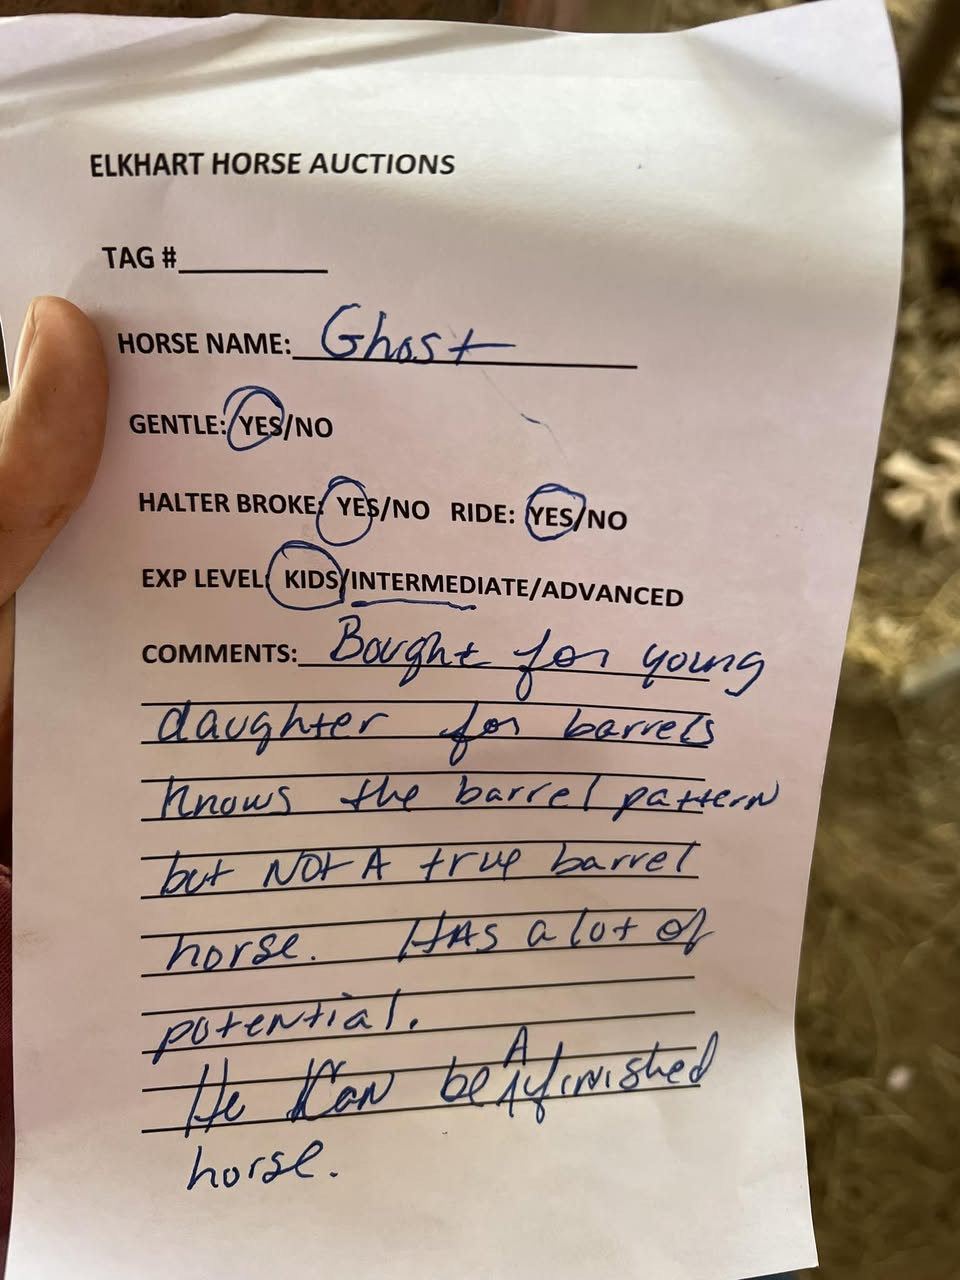 ELKHART HORSE AUCTIONS
TAG #__________
HORSE NAME: Ghost
GENTLE: YES/NO
HALTER BROKE: YES/NO RIDE: YES/NO
EXP LEVEL: KIDS/INTERMEDIATE/ADVANCED
COMMENTS: Bought for young
daughter for barrels
knows the barrel pattern
but NOt A true barrel
horse. HAS a lot of
potential.
He Can be A finished
horse.